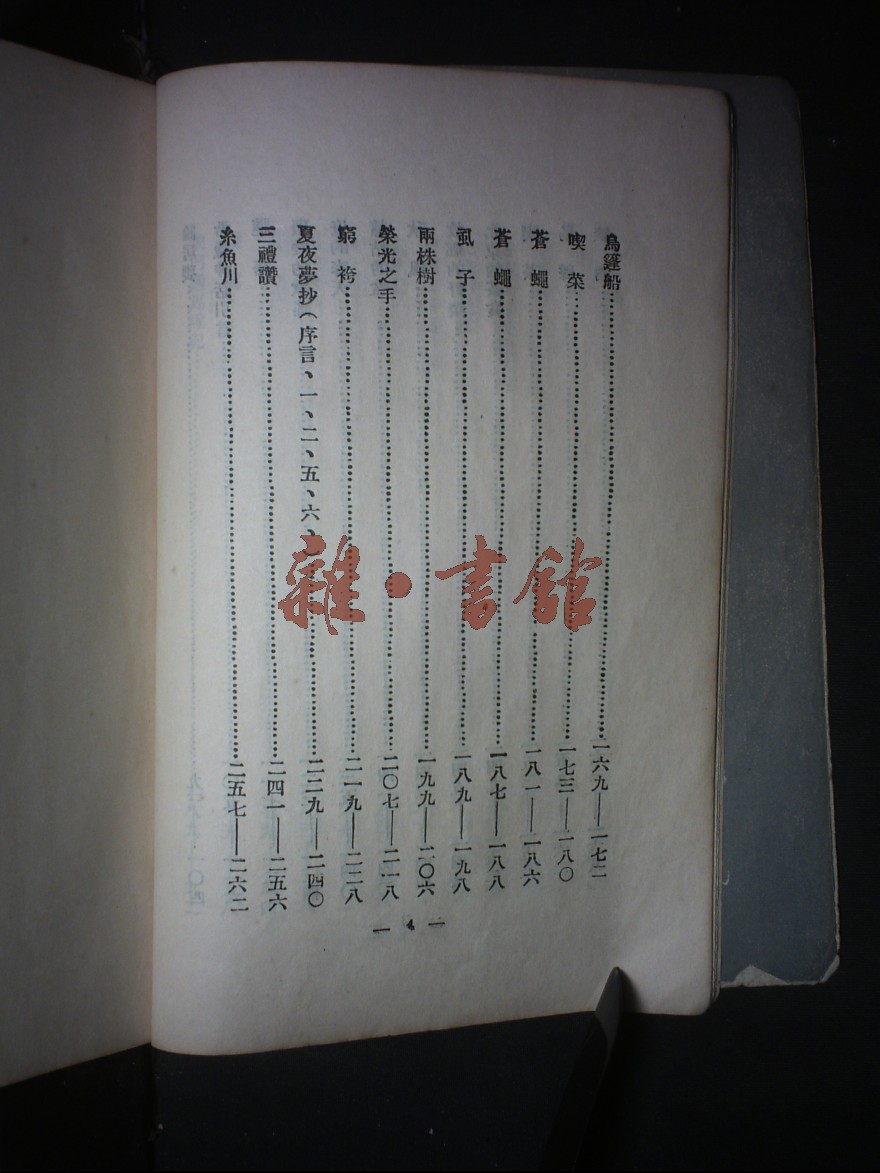 烏篷船……一六九—一七二
喫菜……一七三—一八〇
蒼蠅……一八一—一八六
蒼蠅……一八七—一八八
虱子……一八九—一九八
兩株樹……一九九—二〇六
榮光之手……二〇七—二一八
窮袴……二一九—二二八
夏夜夢抄(序言、一、二、五、六、……二二九—二四〇
三禮讚……二四一—二五六
糸魚川……二五七—二六二
雜·書館